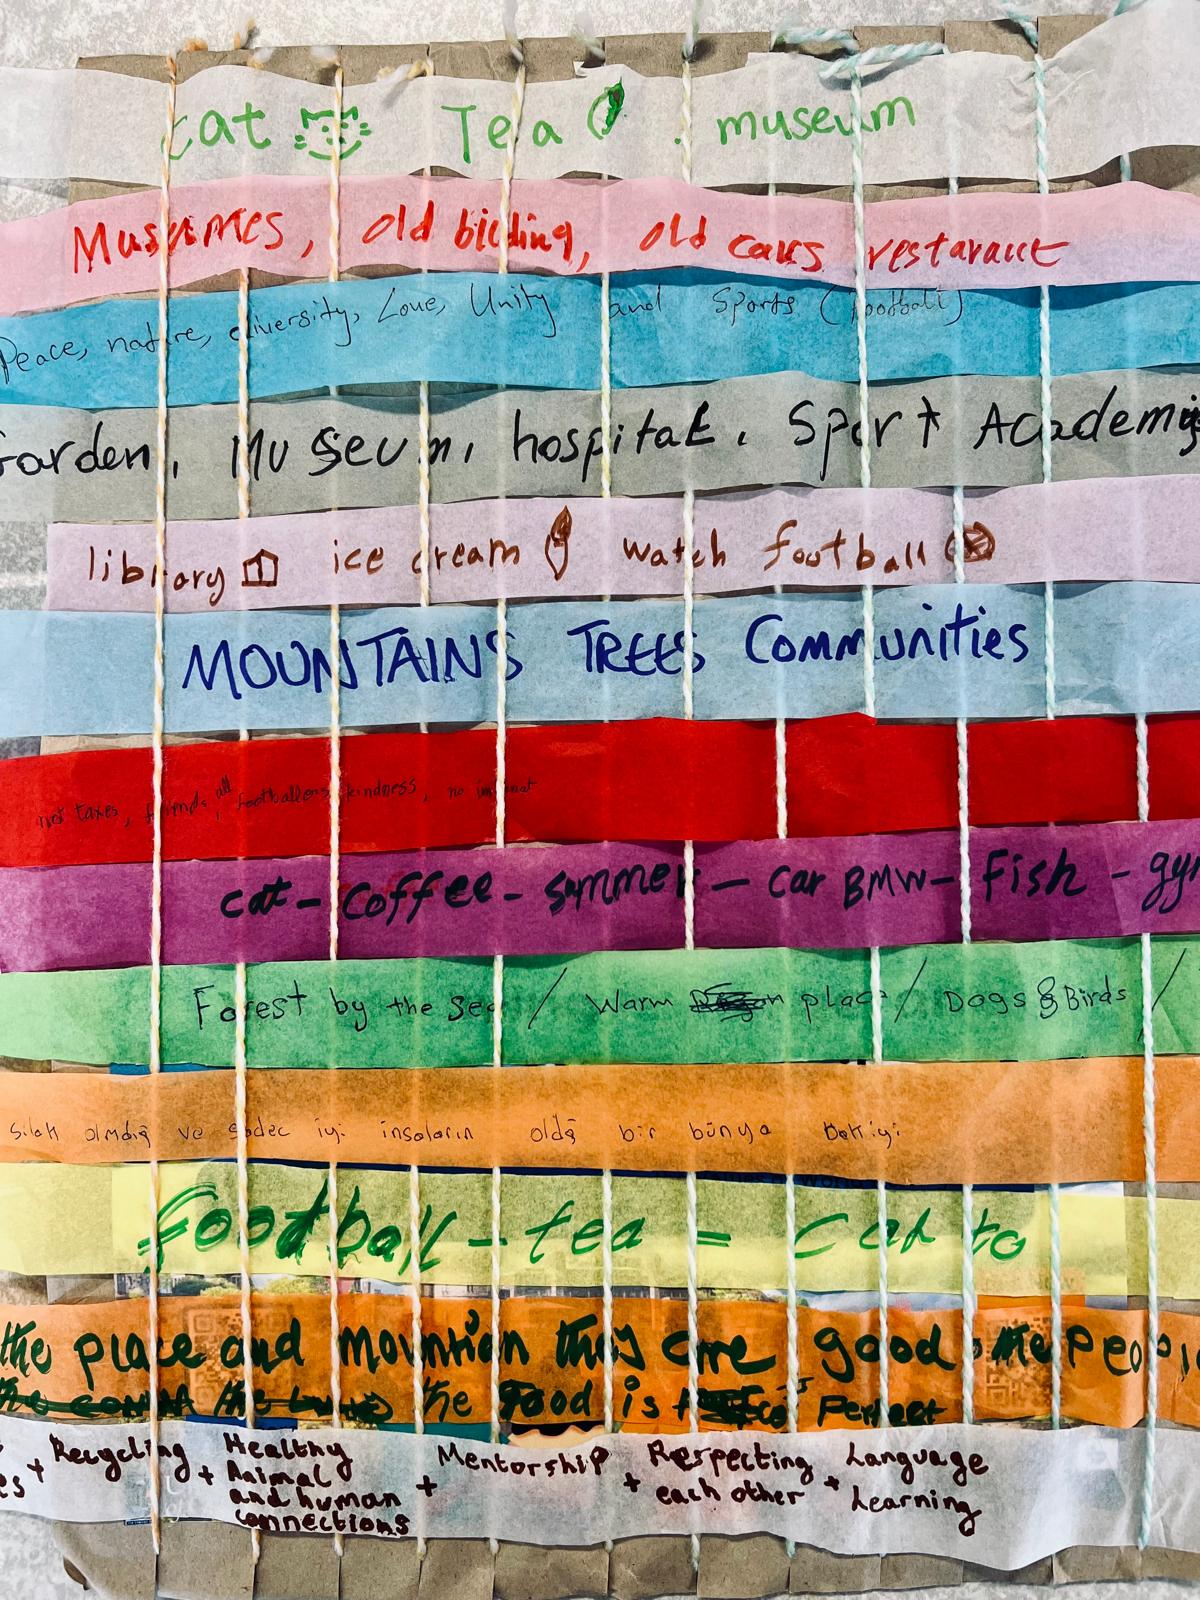 cat Tea . museum
Museumes, old bilding, old cars restarant
Peace, nature, diversity, Love, Unity and Sports (football)
Garden, MuSeum, hospital, Sport Academi
library ice cream watch football
MOUNTAINS TREES Communities
not taxes, friends, all footballers, kindness, no
cat - Coffee - summer - Car BMW - Fish - gy
Forest by the Sea / Warm place / Dogs & Birds /
Silah olmdığ ve sadec iyi insaların oldğ bir bünya
football - tea = cat to
the place and mountian they are good the Peopl
the food is Perfect
es + Recycling + Healthy Animal and human connections + Mentorship + Respecting each other + Language Learning